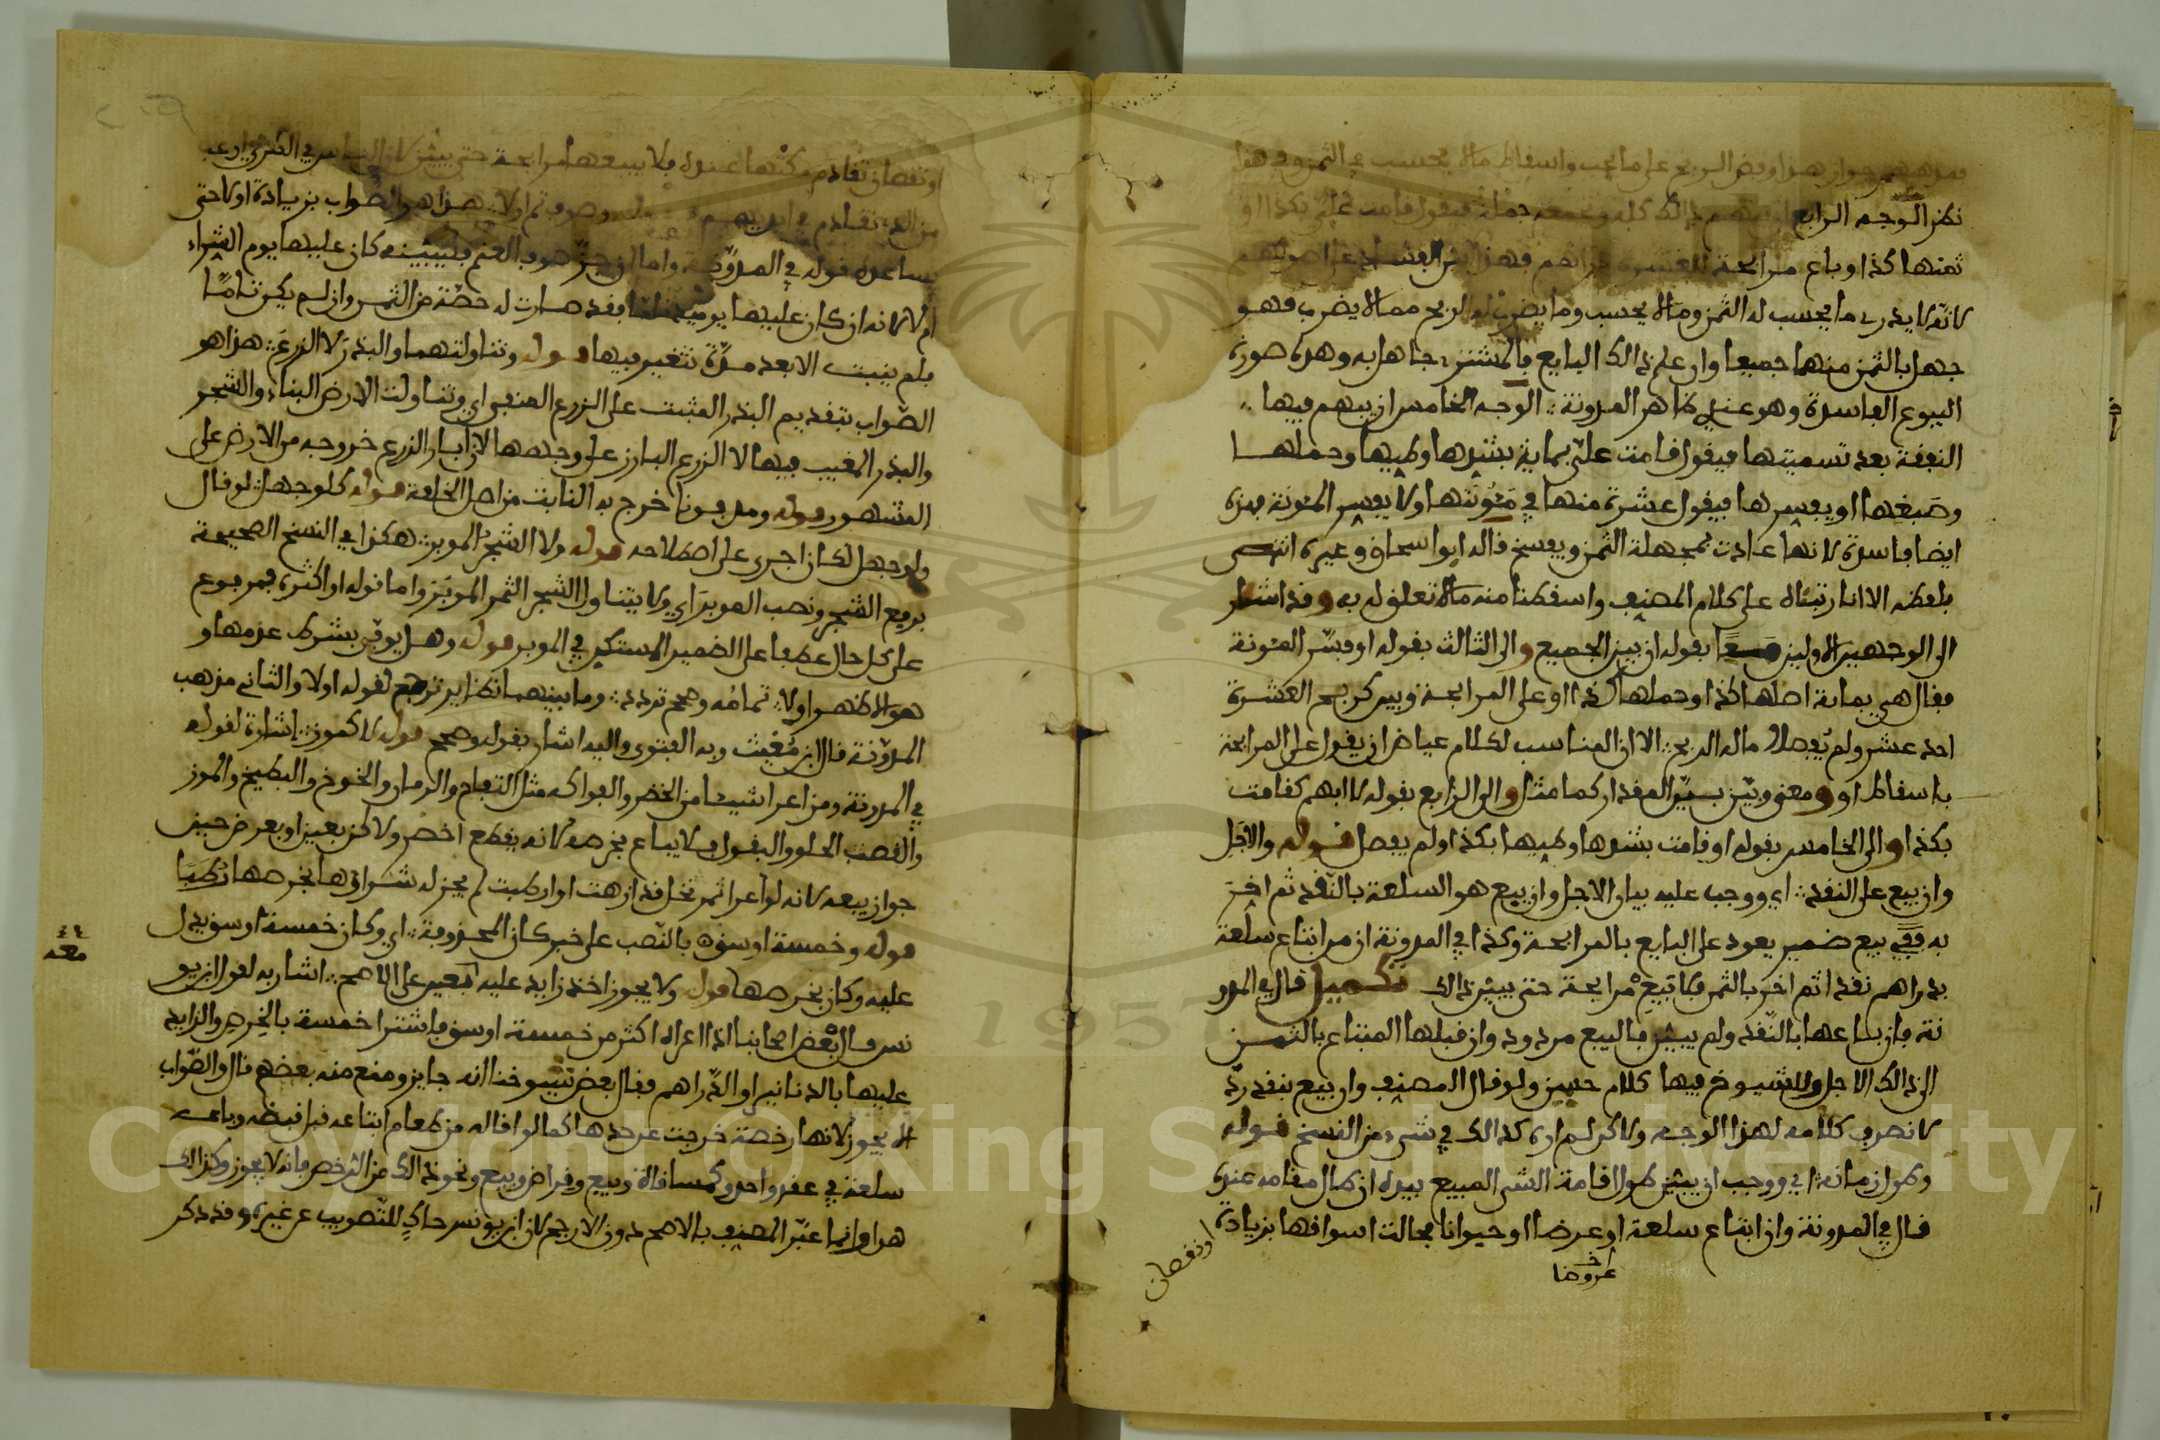 نظر الوجه الرابع ان يبهم ذالك كله و يجمعه جملة فيقول قامت علي بكذا او
ثمنها كذا وباع مرابحة للعشرة درهم فهذا بين الفساد على اصولهم
لانه لا يدرى ما يحسب له الثمن وما لا يحسب وما يضرب له الربح مما لا يضرب فهو
جهل بالثمن منهما جميعا وان علم ذالك البايع فالمشتري جاهل به وهذه صورة
البيوع الفاسدة وهو عندي ظاهر المدونة الوجه الخامس ان يبهم فيها
النفقة بعد تسميتها فيقول قامت علي بماية بشدها وطيها وحملها
وصبغها او يفسرها فيقول عشرة منها في مئونتها ولا يفسر المئونة فهذه
ايضا فاسدة لانها عادت بمجهلة الثمن ويفسخ قاله ابو اسحاق وغيره انتهى
بلفظه الا انا رتبناه على كلام المصنف واسقطنا منه ما لا تعلق له به وقد اشار
الى الوجهين الاولين معا بقوله ان بين الجميع والى الثالث بقوله او فسر المئونة
فقال هي بماية اصلها كذا وحملها كذا او على المرابحة وبين كربح العشرة
احد عشر ولم يفصلا ما له الربح الا ان المناسب لكلام عياض ان يقول على المرابحة
باسقاط او ومعنى وبين بين المقدار كما مثل والى الرابع بقوله لا ابهم كقامت
بكذا والى الخامس بقوله او قامت بشدها وطيها بكذا ولم يفصل قوله والاجل
وان بيع على النقد اي ووجب عليه بيان الاجل وان بيع هو السلعة بالنقد ثم اخر
به ففي بيع ضمير يعود على البايع بالمرابحة وكذا في المدونة ان من ابتاع سلعة
بدراهم نقدا ثم اخر بالثمن فلا تبع مرابحة حتى يبين ذالك تكميل قال في المدو
نة فان باعها بالنقد ولم يبين فالبيع مردود وان قبلها المبتاع بالثمن
الى ذالك الاجل وللشيوخ فيها كلام حسن ولو قال المصنف وان بيع بنقد رد
لانصرف كلامه لهذا الوجه ولاكن لم اره كذالك في شيء من النسخ قوله
وطول زمانه اي ووجب ان يبين طول اقامة الشي المبيع بيده ان طال مقامه عنده
قال في المدونة وان ابتاع سلعة او عرضا او حيوانا فحالت اسواقها بزيادة
عروضا
او نقصان
او نقصان تقادم مكثها عنده فلا يبيعها مرابحة حتى يبين لان الناس في الطري ارغب
من الذي تقادم في ايديهم
يساعده قوله في المدونة واما ان جز صوف الغنم فليبينه كان عليها يوم الشراء
ام لا لانه ان كان عليها يومئذ تاما فقد صارت له حصة من الثمن وان لم يكن تاما
فلم ينبت الا بعد مدة تتغير فيها قوله وتناولتهما والبذر لا الزرع هذا هو
الصواب بتقديم البذر المثبت على الزرع المنفي اي وتناولت الارض البناء والشجر
والبذر المغيب فيها لا الزرع البارز على وجهها لان ابار الزرع خروجه من الارض على
المشهور قوله ومدفونا خرج به النابت من اصل الخلقة قوله كلو جهل لو قال
ولو جهل لكان اجرى على اصطلاحه قوله ولا الشجر الموبر هكذا في النسخ الصحيحة
برفع الشجر ونصب الموبر اي ولا يتناول الشجر الثمر الموبر واما قوله او اكثره فمرفوع
على كل حال عطفا على الضمير المستكن في الموبر قوله وهل يوفى بشرط عدمها و
هو الاظهر اولا تمامه وصحح تردد وما بينهما
المدونة قال ابن مغيث وبه الفتوى واليه اشار بقوله وصحح قوله لا كموز اشارة لقوله
في المدونة ومن اعرا شيئا من الخضر والفواكه مثل التفاح والرمان والخوخ والبطيخ والموز
والقصب الحلو والبقول فلا يباع بخرصه لانه يقطع اخضر ولاكن بعين او بعرض حين
جواز بيعه لانه لو اعرا ثمر نخل قد ازهت او ارطبت لم يجز له شراؤها بخرصها رطبا
قوله وخمسة اوسق بالنصب على خبر كان المحذوفة اي وكان خمسة اوسق يدل
عليه وكان بخرصها قوله ولا يجوز اخذ زايد عليه بعين على الاصح اشار به لقول ابن يو
نس قال بعض اصحابنا اذا اعراه اكثر من خمسة اوسق فاشترا خمسة بالخرص والزايد
عليها بالدنانير او الدراهم فقال بعض شيوخنا انه جايز ومنع منه بعضهم قال والصواب
الا يجوز لانها رخصة خرجت عن حدها كما لو اقاله من طعام ابتاعه قبل قبضه وباعه
سلعة في عقد واحد وكمساقاة وبيع وقراض وبيع ونحو ذالك من الرخص فانه لا يجوز وكذالك
هذا وانما عبر المصنف بالاصح دون الارجح لان ابن يونس حاكي للتصويب عن غيره وقد ذكر
معه
Copyright © King Saud University
1957